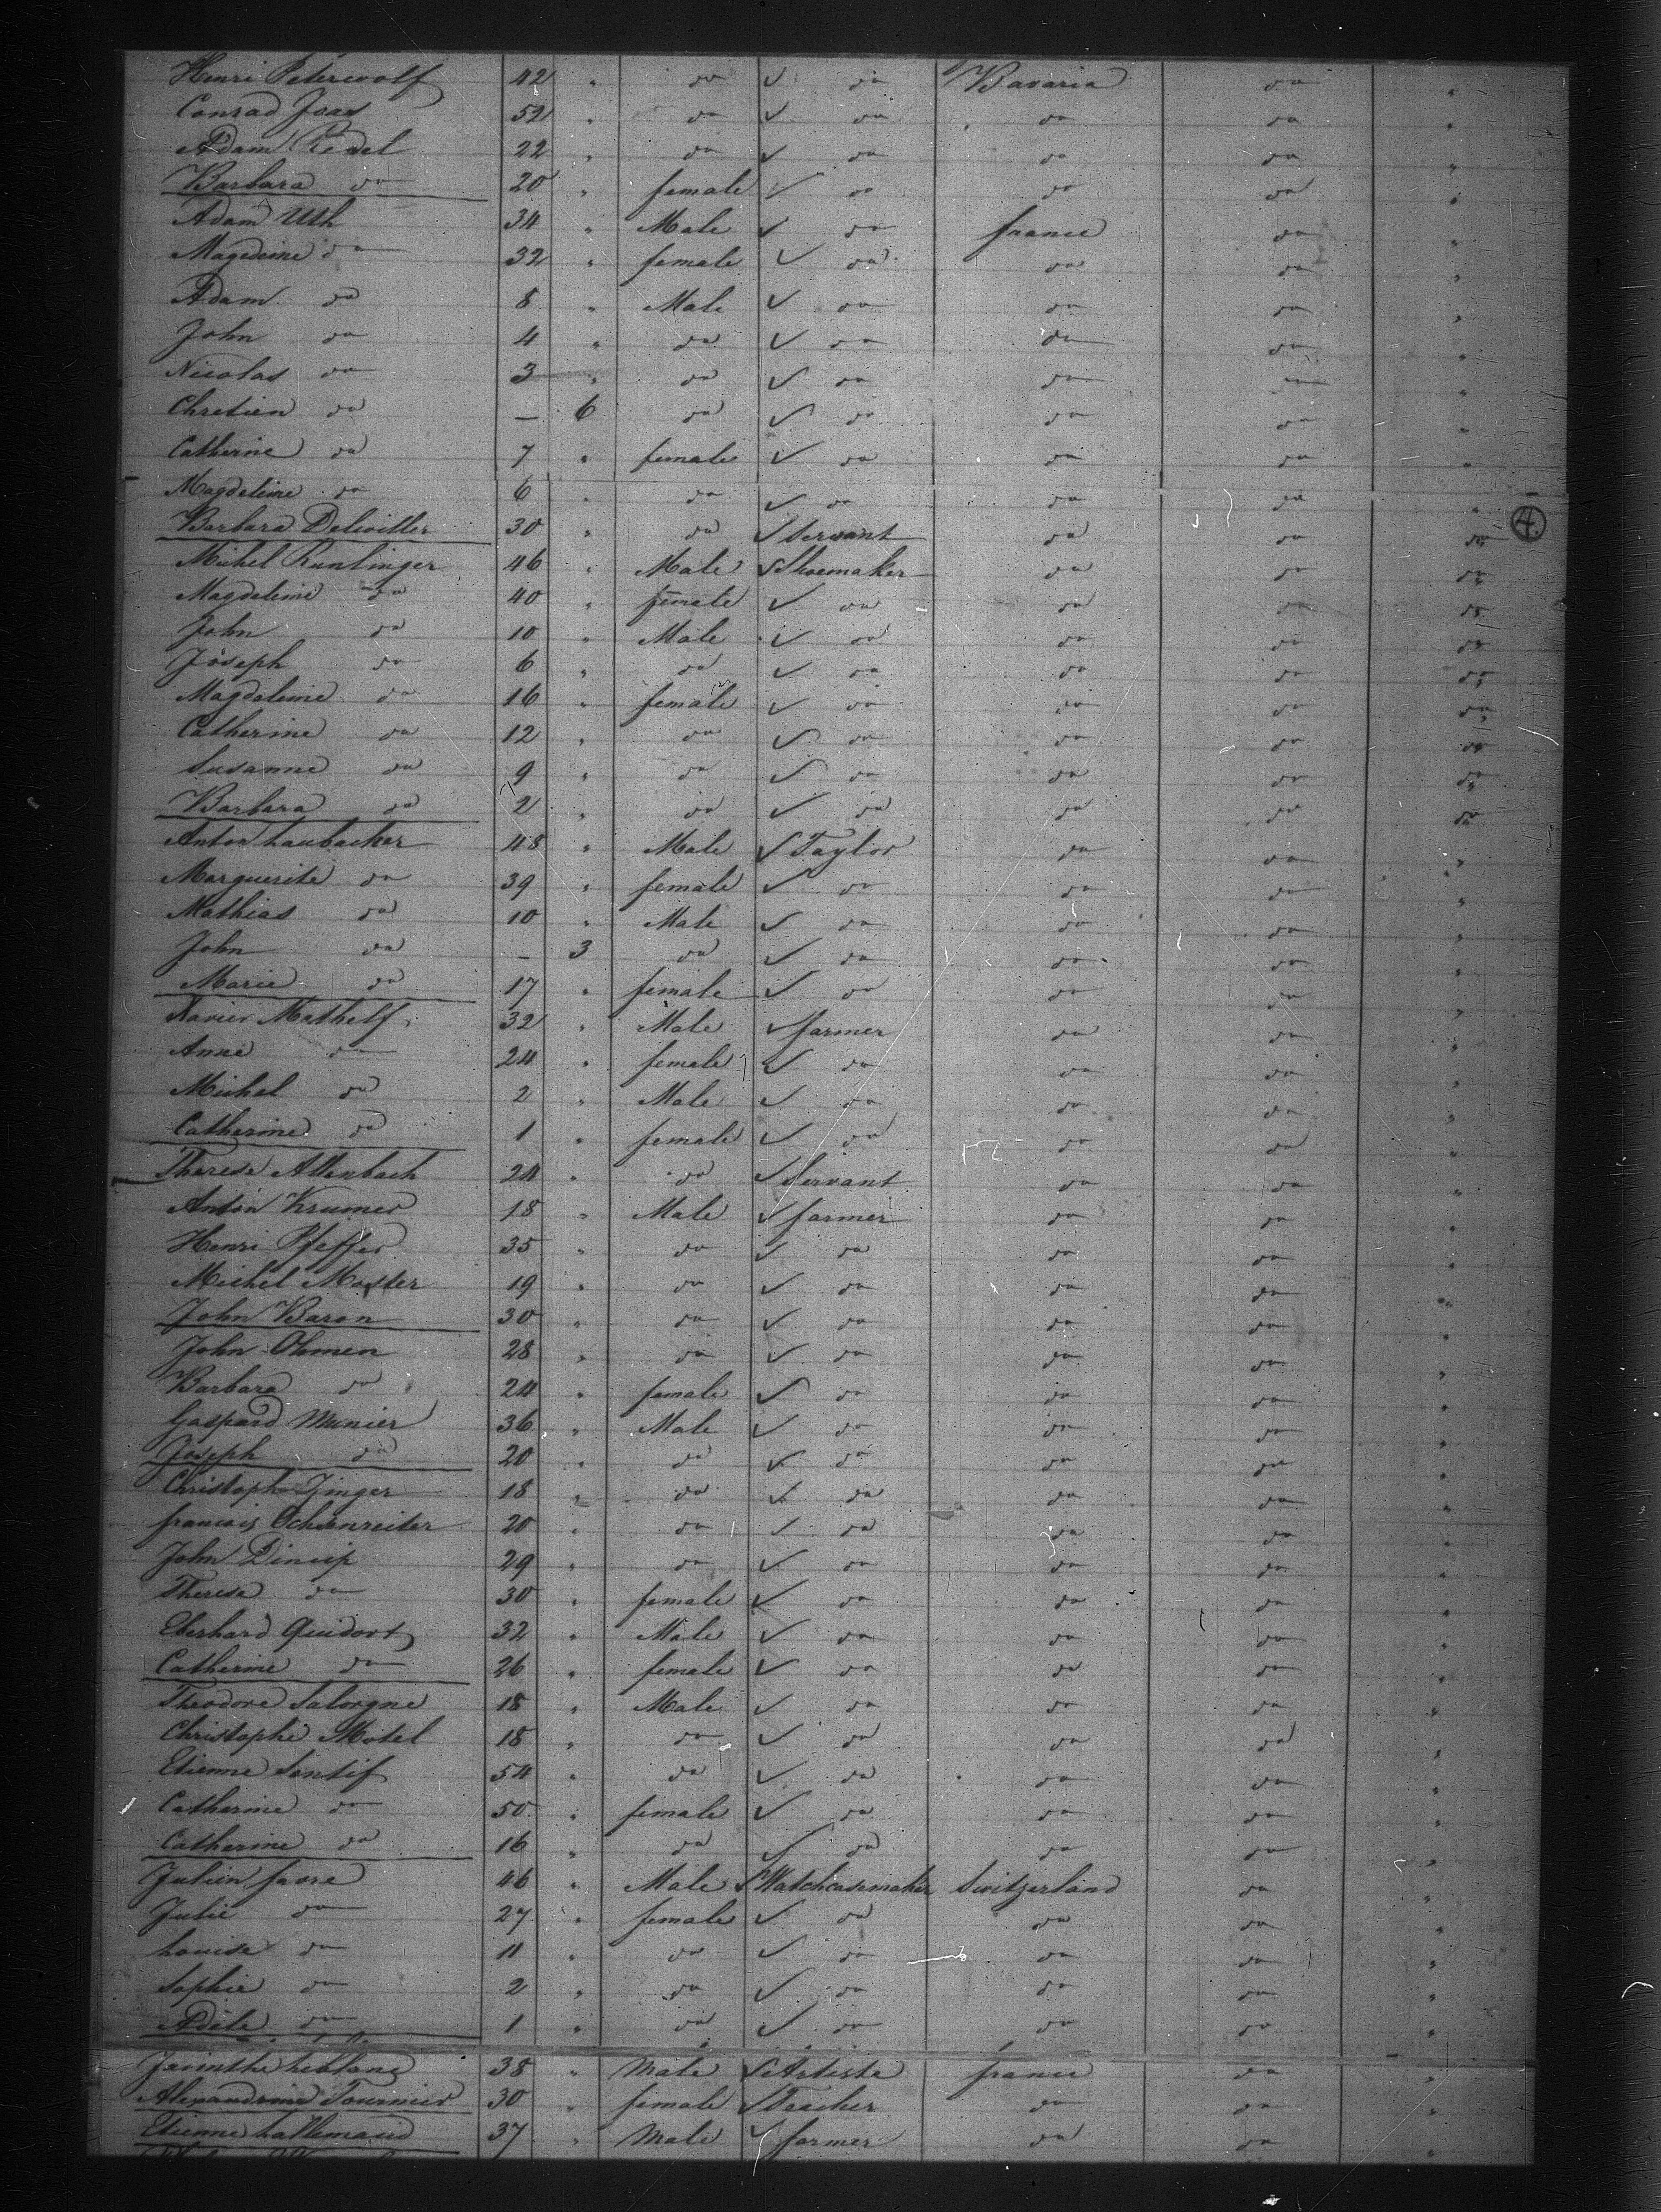 Henri Peterwolf 42 " do do Bavaria do "
Conrad Joas 52 " do do do do "
Adam Redel 22 " do do do do "
Barbara do 20 " female do do do "
Adam Uth 34 " Male do france do "
Magdeine do 32 " female do do do "
Adam do 8 " Male do do do "
John do 4 " do do do do "
Nicolas do 3 " do do do do "
Chretien do — 6 do do do do "
Catherine do 7 " female do do do "
Magdeleine do 6 " do do do do "
Barbara 30 " do Servant do do do 4.
Michel Runlinger 46 " Male Shoemaker do do do
Magdeleine do 40 " female do do do do
John do 10 " Male do do do do
Joseph do 6 " do do do do do
Magdeleine do 16 " female do do do do
Catherine do 12 " do do do do do
Susanne do 9 " do do do do do
Barbara do 2 " do do do do do
Anton Laubacker 48 " Male Taylor do do "
Marguerite do 39 " female do do do "
Mathias do 10 " Male do do do "
John do — 3 do do do do "
Marie do 17 " female do do do "
Xavier Mathelf 32 " Male farmer do do "
Anne do 24 " female do do do "
Michel do 2 " Male do do do "
Catherine do 1 " female do do do "
Therese Altenbach 24 " do Servant do do "
Anton Krumer 18 " Male farmer do do "
Henri Pfeffer 35 " do do do do "
Michel Moster 19 " do do do do "
John Baron 30 " do do do do "
John Ohmen 28 " do do do do "
Barbara do 24 " female do do do "
Gaspard Munier 36 " Male do do do "
Joseph do 20 " do do do do "
Christoph 18 " do do do do "
francois Ochsenreiter 20 " do do do do "
John 29 " do do do do "
Therese do 30 " female do do do "
Eberhard Quidort 32 " Male do do do "
Catherine do 26 " female do do do "
Theodore Salorgne 18 " Male do do do "
Christophe Motel 18 " do do do do "
Etienne Sontif 54 " do do do do "
Catherine do 50 " female do do do "
Catherine do 16 " do do do do "
Julien favre 46 " Male Watchcasemaker Switzerland do "
Julie do 27 " female do do do "
Louise do 11 " do do do do "
Sophie do 2 " do do do do "
Adèle do 1 " do do do do "
Jacinthe Leblanc 38 " Male Artiste france do "
Alexandrine Fournier 30 " female Teacher do do "
Etienne Lallemand 37 " Male farmer do do "